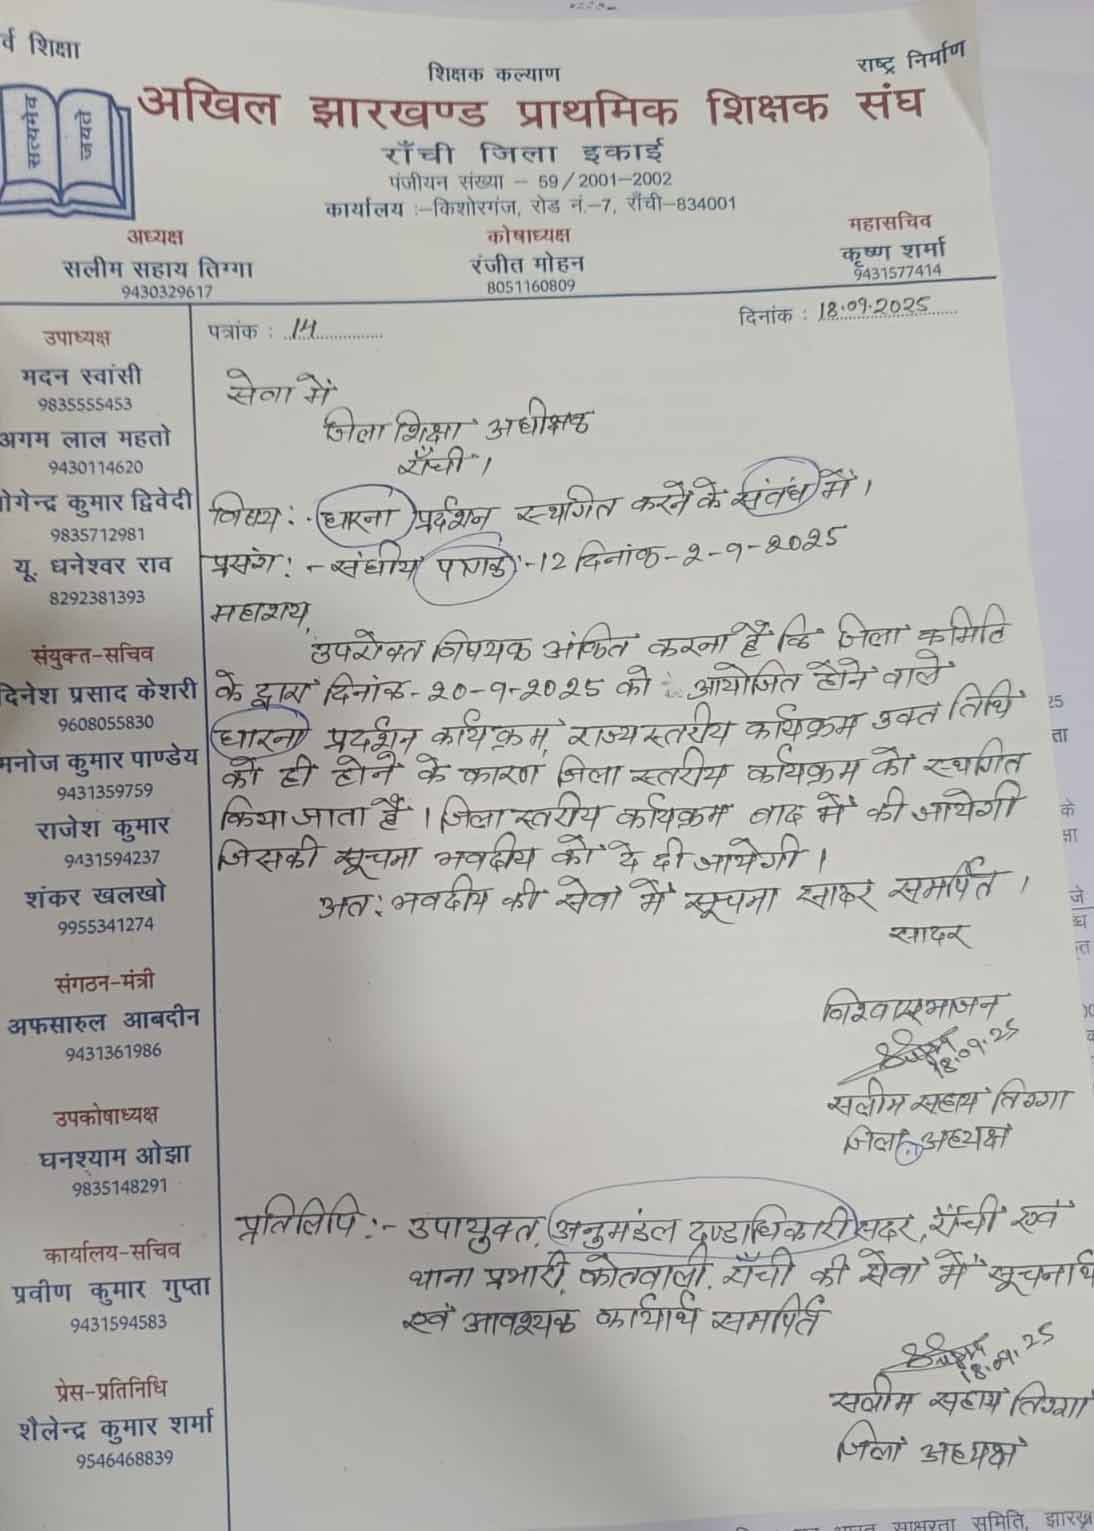 र्व शिक्षा
शिक्षक कल्याण
राष्ट्र निर्माण
सत्यमेव
जयते
अखिल झारखण्ड प्राथमिक शिक्षक संघ
राँची जिला इकाई
पंजीयन संख्या – 59/2001–2002
कार्यालय :–किशोरगंज, रोड नं.–7, राँची–834001
अध्यक्ष
सलीम सहाय तिग्गा
9430329617
कोषाध्यक्ष
रंजीत मोहन
8051160809
महासचिव
कृष्ण शर्मा
9431577414
उपाध्यक्ष
मदन स्वांसी
9835555453
अगम लाल महतो
9430114620
ोगेन्द्र कुमार द्विवेदी
9835712981
यू. धनेश्वर राव
8292381393
संयुक्त-सचिव
दिनेश प्रसाद केशरी
9608055830
मनोज कुमार पाण्डेय
9431359759
राजेश कुमार
9431594237
शंकर खलखो
9955341274
संगठन-मंत्री
अफसारुल आबदीन
9431361986
उपकोषाध्यक्ष
घनश्याम ओझा
9835148291
कार्यालय-सचिव
प्रवीण कुमार गुप्ता
9431594583
प्रेस-प्रतिनिधि
शैलेन्द्र कुमार शर्मा
9546468839
पत्रांक : 14
दिनांक : 18.09.2025
सेवा में
जिला शिक्षा अधीक्षक
राँची।
विषय: - धारना प्रर्दशन स्थगित करने के संबंध में।
प्रसंग: - संघीय पत्रांक:-12 दिनांक-2-9-2025
महाशय,
उपरोक्त विषयक अंकित करना है कि जिला कमिटि
के द्वारा दिनांक-20-9-2025 को आयोजित होने वाले
धारना प्रदर्शन कार्यक्रम, राज्य स्तरीय कार्यक्रम उक्त तिथि
को ही होने के कारण जिला स्तरीय कार्यक्रम को स्थगित
किया जाता है। जिला स्तरीय कार्यक्रम बाद में की जायेगी
जिसकी सूचना भवदीय को दे दी जायेगी।
अत: भवदीय की सेवा में सूचना सादर समर्पित।
सादर
विश्वासभाजन
18.09.25
सलीम सहाय तिग्गा
जिला अध्यक्ष
प्रतिलिपि:- उपायुक्त, अनुमंडल दण्डाधिकारी सदर, राँची एवं
थाना प्रभारी, कोतवाली, राँची की सेवा में सूचनार्थ
एवं आवश्यक कार्यार्थ समर्पित
18.09.25
सलीम सहाय तिग्गा
जिला अध्यक्ष
साक्षरता समिति, झारख